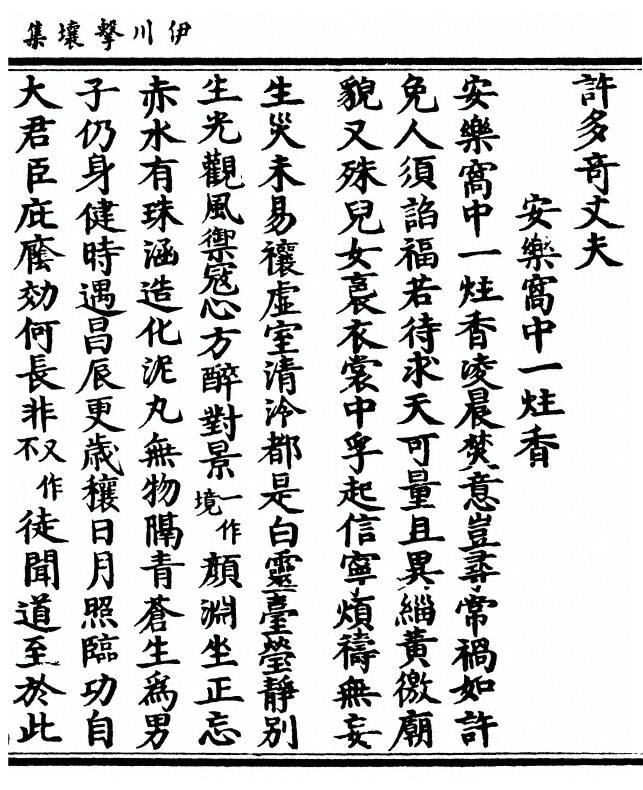 伊川擊壤集
許多奇丈夫
安樂窩中一炷香
安樂窩中一炷香凌晨焚意豈尋常禍如許
免人須諂福若待求天可量且異緇黃徼廟
貌又殊兒女裛衣裳中孚起信寧煩禱無妄
生災未易禳虛室清泠都是白靈臺瑩靜別
生光觀風禦寇心方醉對景一作境顏淵坐正忘
赤水有珠涵造化泥丸無物隔青蒼生爲男
子仍身健時遇昌辰更歲穰日月照臨功自
大君臣庇廕効何長非又作不徒聞道至於此